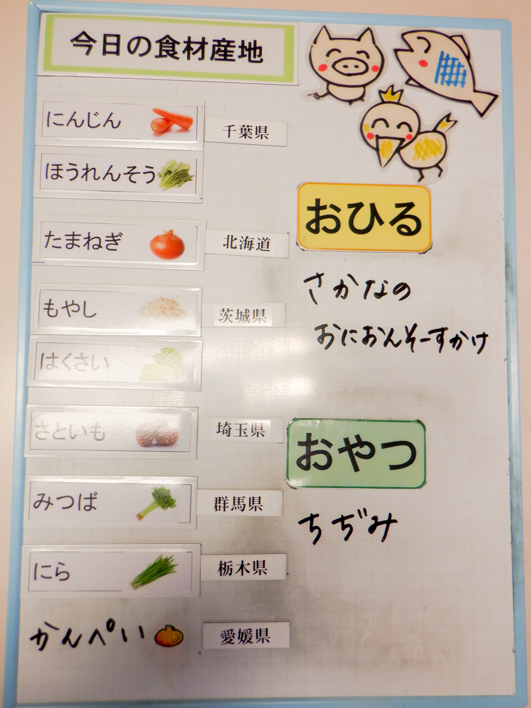 今日の食材産地
にんじん 千葉県
ほうれんそう
たまねぎ 北海道
もやし 茨城県
はくさい
さといも 埼玉県
みつば 群馬県
にら 栃木県
かんぺい 愛媛県
おひる
さかなの
おにおんそーすかけ
おやつ
ちぢみ